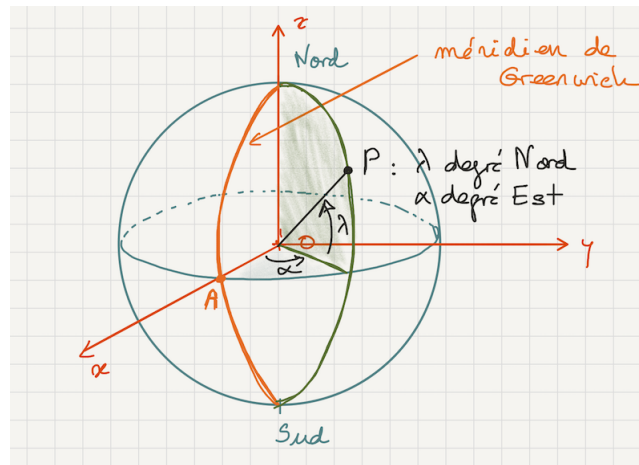 z
Nord
méridien de
Greenwich
P : λ degré Nord
α degré Est
λ
O
y
α
A
x
Sud